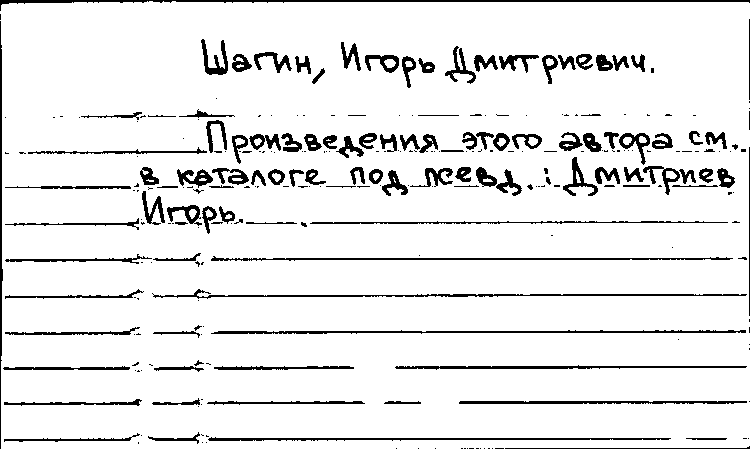 Шагин, Игорь Дмитриевич.
Произведения этого автора см.
в каталоге под псевд.: Дмитриев
Игорь.